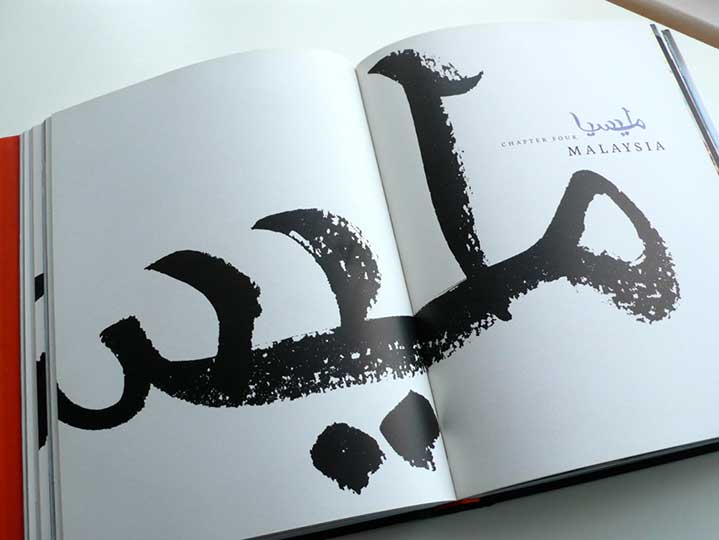 مليسيا
CHAPTER FOUR
MALAYSIA
مليس